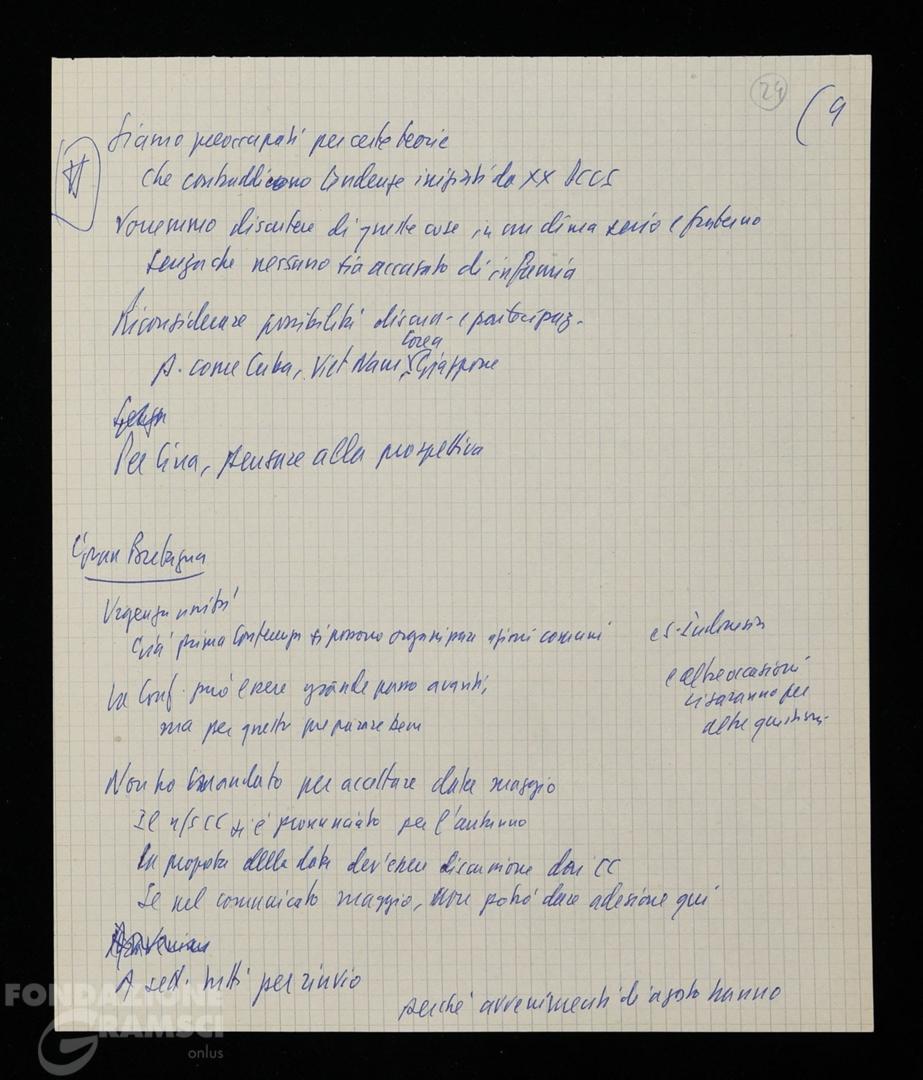 24
(9
Siamo preoccupati per certe teorie
che contraddicono tendenze iniziate da XX PCUS
Vorremmo discutere di queste cose in un clima serio e fraterno
senza che nessuno sia accusato di infamia
Riconsiderare possibilità discuss. e partecipaz.
Corea
A. come Cuba, Viet Nam, Giappone
Per Cina, pensare alla prospettiva
Gran Bretagna
Urgenza unità
Già prima Conferenza si possono organizzare azioni comuni
es. Indonesia
e altre occasioni
ci saranno per
altre questioni
La Conf. può essere grande passo avanti,
ma per questo preparare bene
Non ho mandato per accettare data maggio
Il n/s CC si è pronunciato per l'autunno
La proposta della data dev'essere discussione dai CC
Se nel comunicato maggio, non potrò dare adesione qui
A sett. tutti per rinvio
perché avvenimenti di agosto hanno
FONDAZIONE
GRAMSCI
onlus